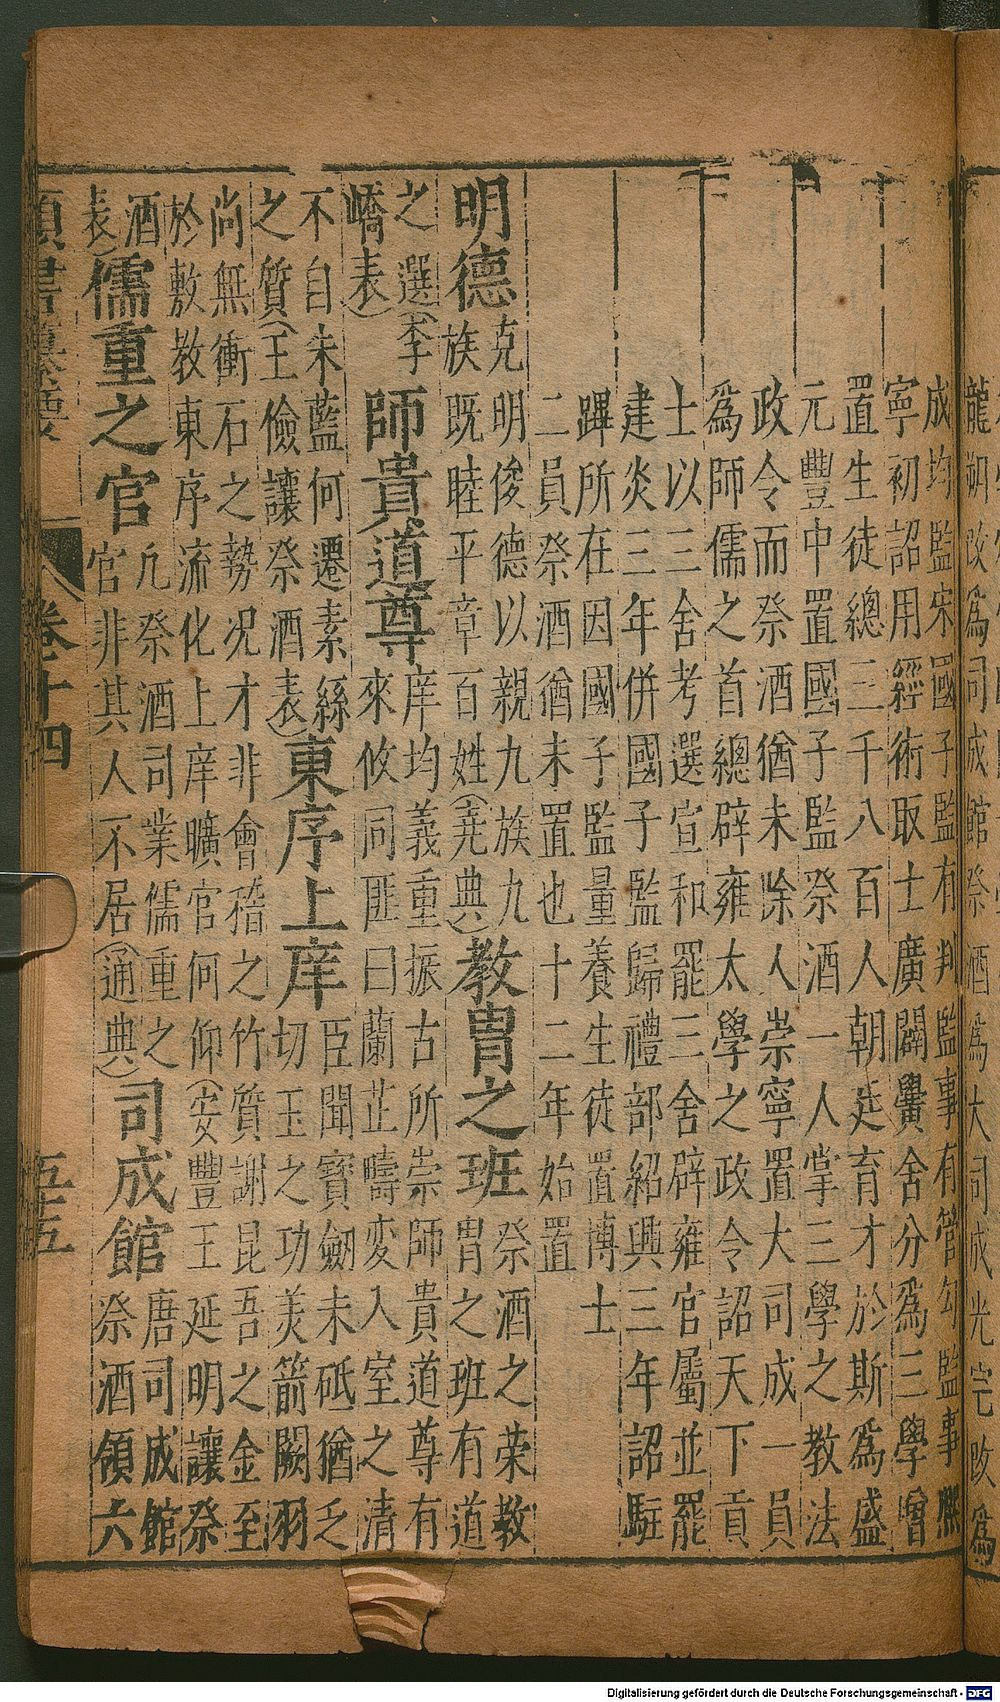 龍朔改爲司成館祭酒爲大司成光宅改爲
成均監宋國子監有判監事有管勾監事熈
寧初詔用經術取士廣闢黌舍分爲三學增
置生徒總三千八百人朝廷育才於斯爲盛
元豐中置國子監祭酒一人掌三學之教法
政令而祭酒猶未除人崇寧置大司成一員
爲師儒之首總辟雍太學之政令詔天下貢
士以三舍考選宣和罷三舍辟雍官屬並罷
建炎三年併國子監歸禮部紹興三年詔駐
蹕所在因國子監量養生徒置博士
二員祭酒猶未置也十二年始置
明德
克明俊德以親九族九
族既睦平章百姓(堯典)
教胄之班
祭酒之荣教
胄之班有道
之選(李
嶠表)
師貴道尊
庠均義重振古所崇師貴道尊有
來攸同匪曰蘭芷疇変入室之清
不自朱藍何遷素絲
之質(王儉讓祭酒表)
東序上庠
臣聞寳劒未砥猶乏
切玉之功美箭闕羽
尚無衝石之勢况才非會稽之竹質謝昆吾之金至
於敷教東序流化上庠曠官何仰(安豐王延明讓祭
酒
表)
儒重之官
凢祭酒司業儒重之
官非其人不居(通典)
司成館
唐司成館
祭酒領六
類書纂要
卷十四
五十五
Digitalisierung gefördert durch die Deutsche Forschungsgemeinschaft - DFG